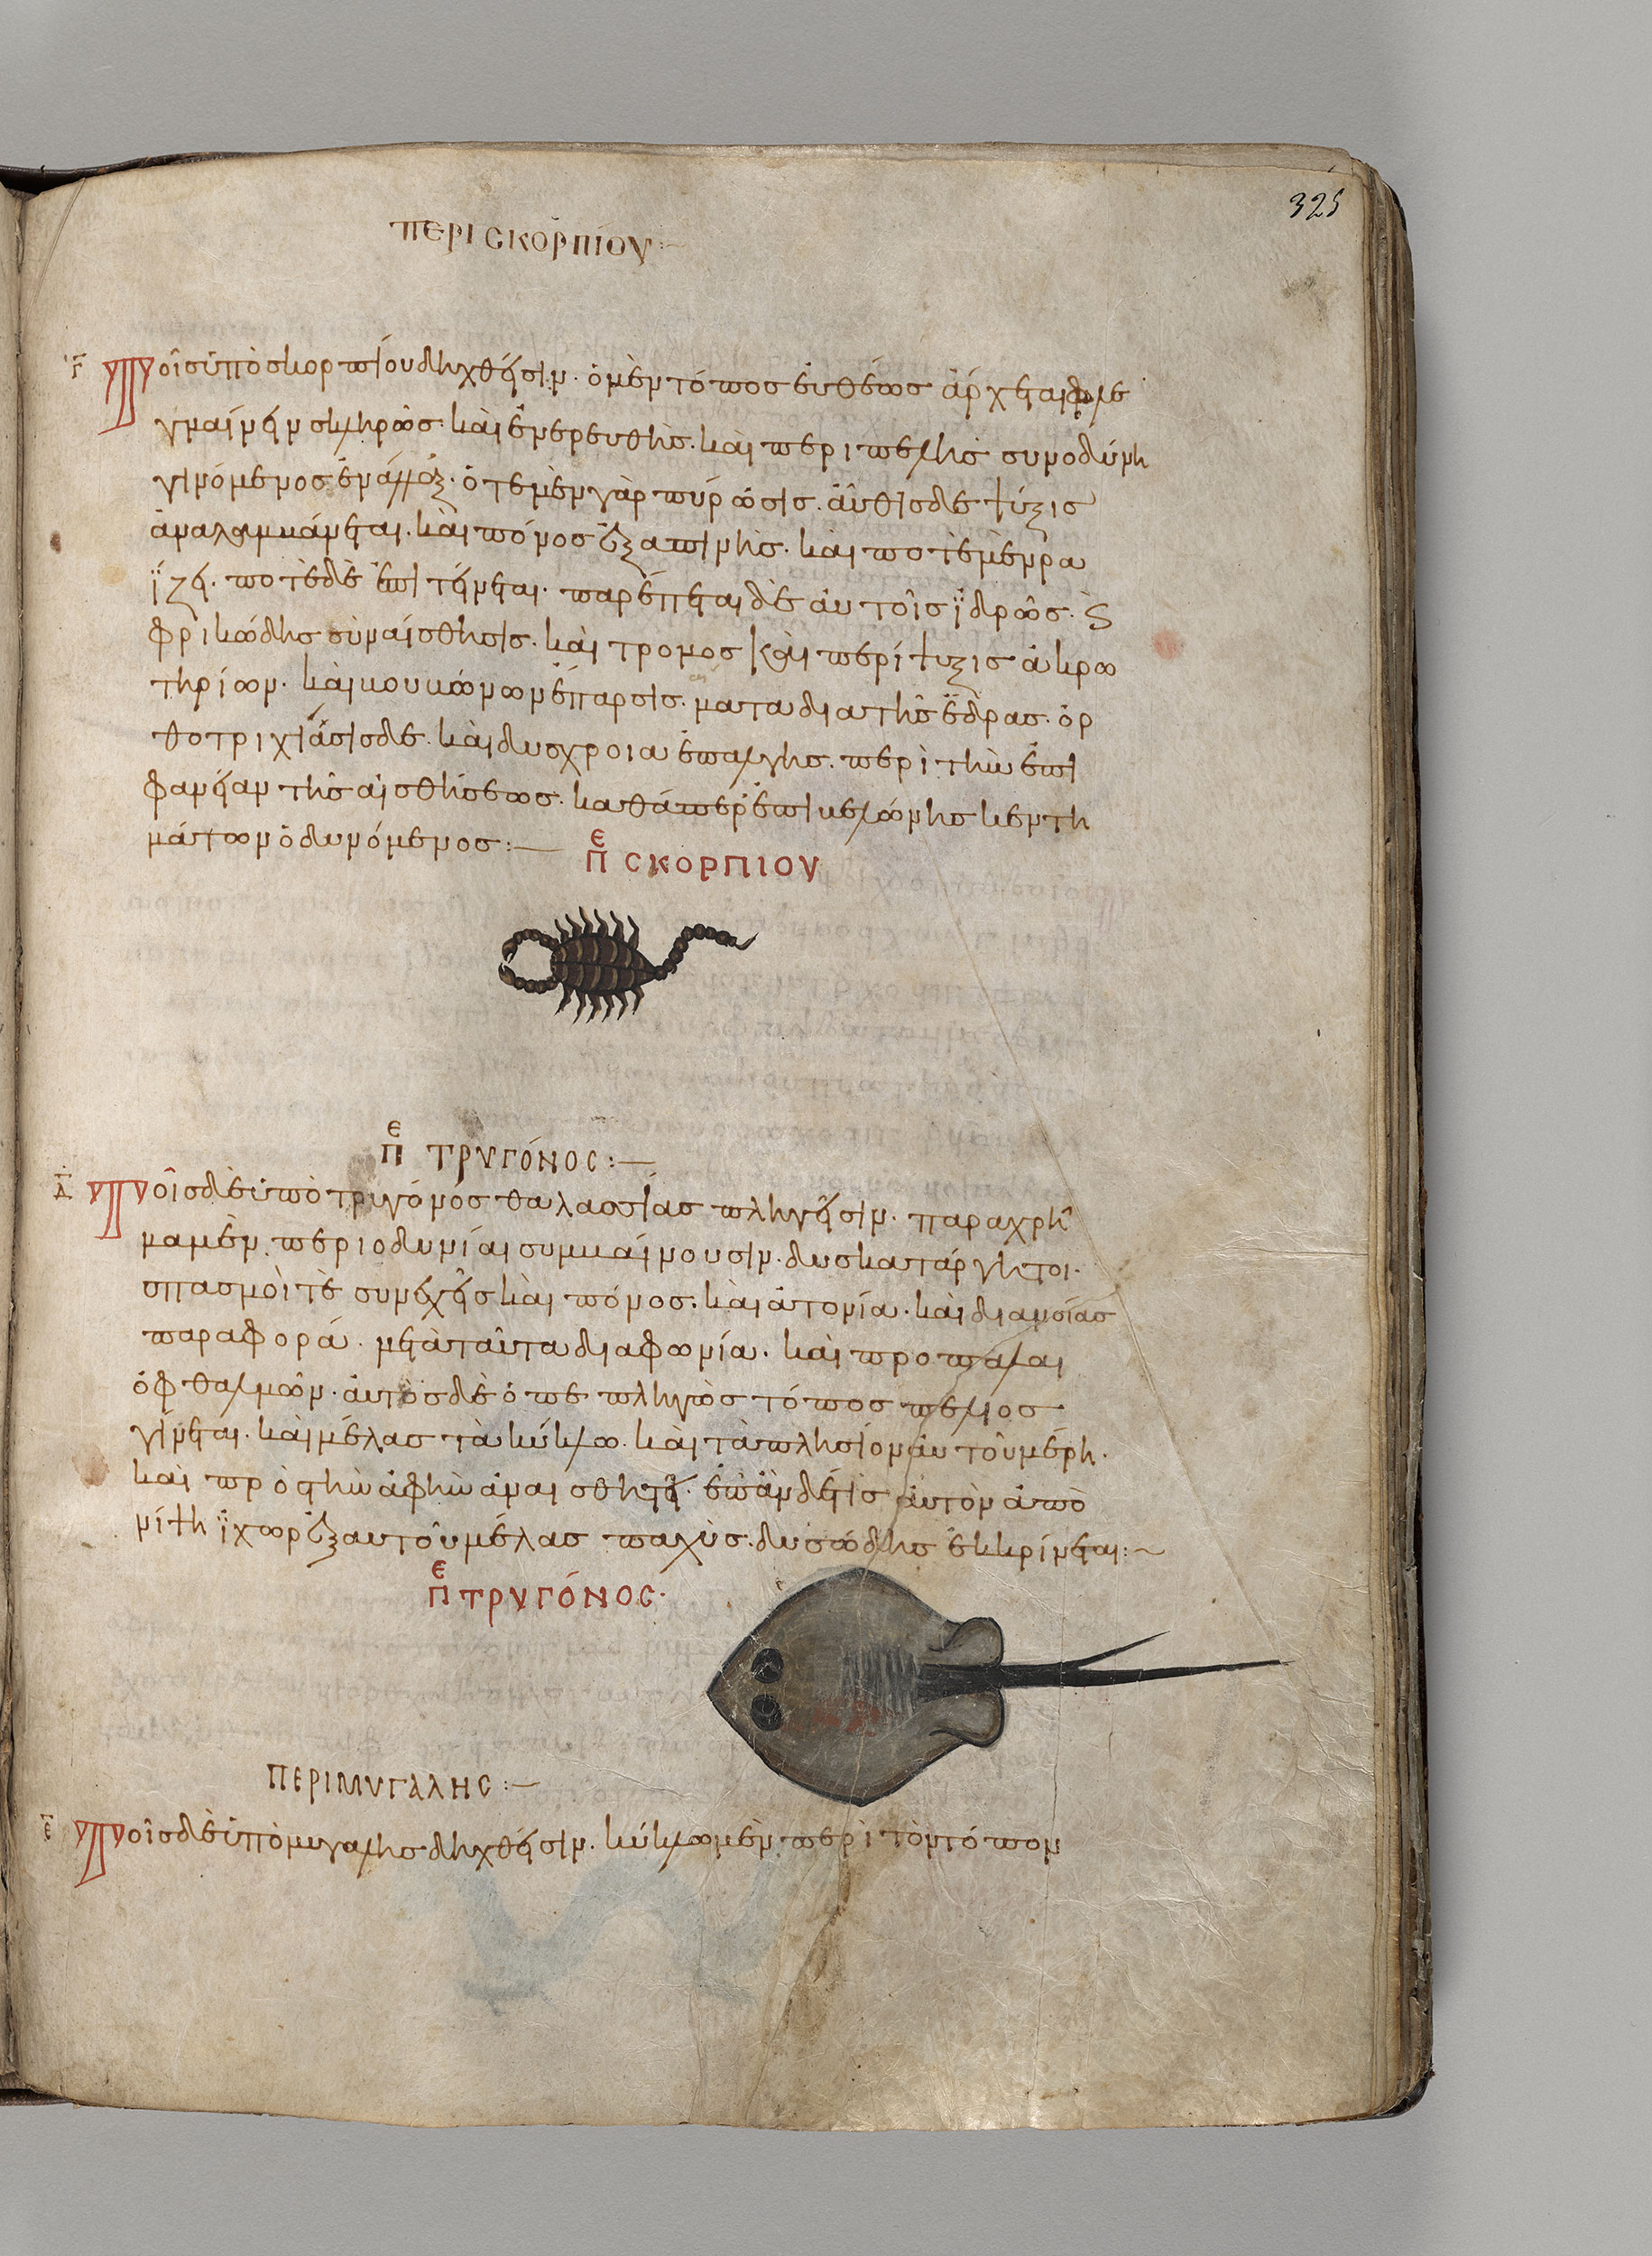 325
ΠΕΡΙ ΣΚΟΡΠΙΟΥ:~
γ Τοῖσ ὑπὸ σκορπίου δηχθεῖσιν. ὁ μὲν τόποσ εὐθέωσ ἄρχεται φλε
γμαίνειν σκληρῶσ. καὶ ἐνερευθὴσ. καὶ περιπελὴσ συνοδύνη
γινόμενοσ ἐναλλάξ. ὁτὲ μὲν γὰρ πύρωσισ. αὖθισ δὲ ψύξισ
ἀναλαμβάνεται. καὶ πόνοσ ἐξαπίνησ. καὶ ποτὲ μὲν ρα
ΐζει. ποτὲ δὲ ἐπιτείνεται. παρέπεται δὲ αὐτοῖσ ϊδρῶσ. ϗ
φρικώδησ συναίσθησισ. καὶ τρομοσ καὶ περίψυξισ ἀκρω
τηρίων. καὶ βουβώνων ἔπαρσισ. ματα δια τῆσ ἕδρασ. ὀρ
θοτριχίασισ δε. καὶ δυσχροια ἐπαλγησ. περὶ τὴν ἐπι
φανειαν τῆσ αἰσθήσεωσ. καθάπερ ἐπὶ βελόνησ κεντη
μάτων ὀδυνόμενοσ:—
ΠΕ ΣΚΟΡΠΙΟΥ
ΠΕ ΤΡΥΓΟΝΟΣ:—
δ Τοῖσ δὲ ὑπὸ τρυγόνοσ θαλασσίασ πληγεῖσιν. παραχρῆ
μα μὲν περιοδυνίαι συμβαίνουσιν. δυσκατάργητοι.
σπασμοὶ τὲ συνεχεῖσ καὶ πόνοσ. καὶ ἀτονία. καὶ διανοίασ
παραφορά. μετὰ ταῦτα διαφωνία. καὶ προπαλαι
ὀφθαλμῶν. ἀυτὸσ δὲ ὁ πε πληγὼσ τόποσ πελιοσ
γίνεται. καὶ μέλασ τὰ κύκλω. καὶ τὰ πλησίον ἀυτοῦ μέρη.
καὶ πρὸσ τὴν ἁφὴν ἀναισθητεῖ. ἐπ ἂν δέ τισ ἀυτὸν ἀπο
νίψη ϊχωρ ἐξ αυτοῦ μέλασ παχὺσ. δυσώδησ ἐκκρίνεται:~
ΠΕ ΤΡΥΓΟΝΟΣ.
ΠΕΡΙ ΜΥΓΑΛΗΣ:—
ε Τοῖσ δὲ ὑπὸ μυγαλησ δηχθεῖσιν. κύκλω μὲν περὶ τὸν τόπον